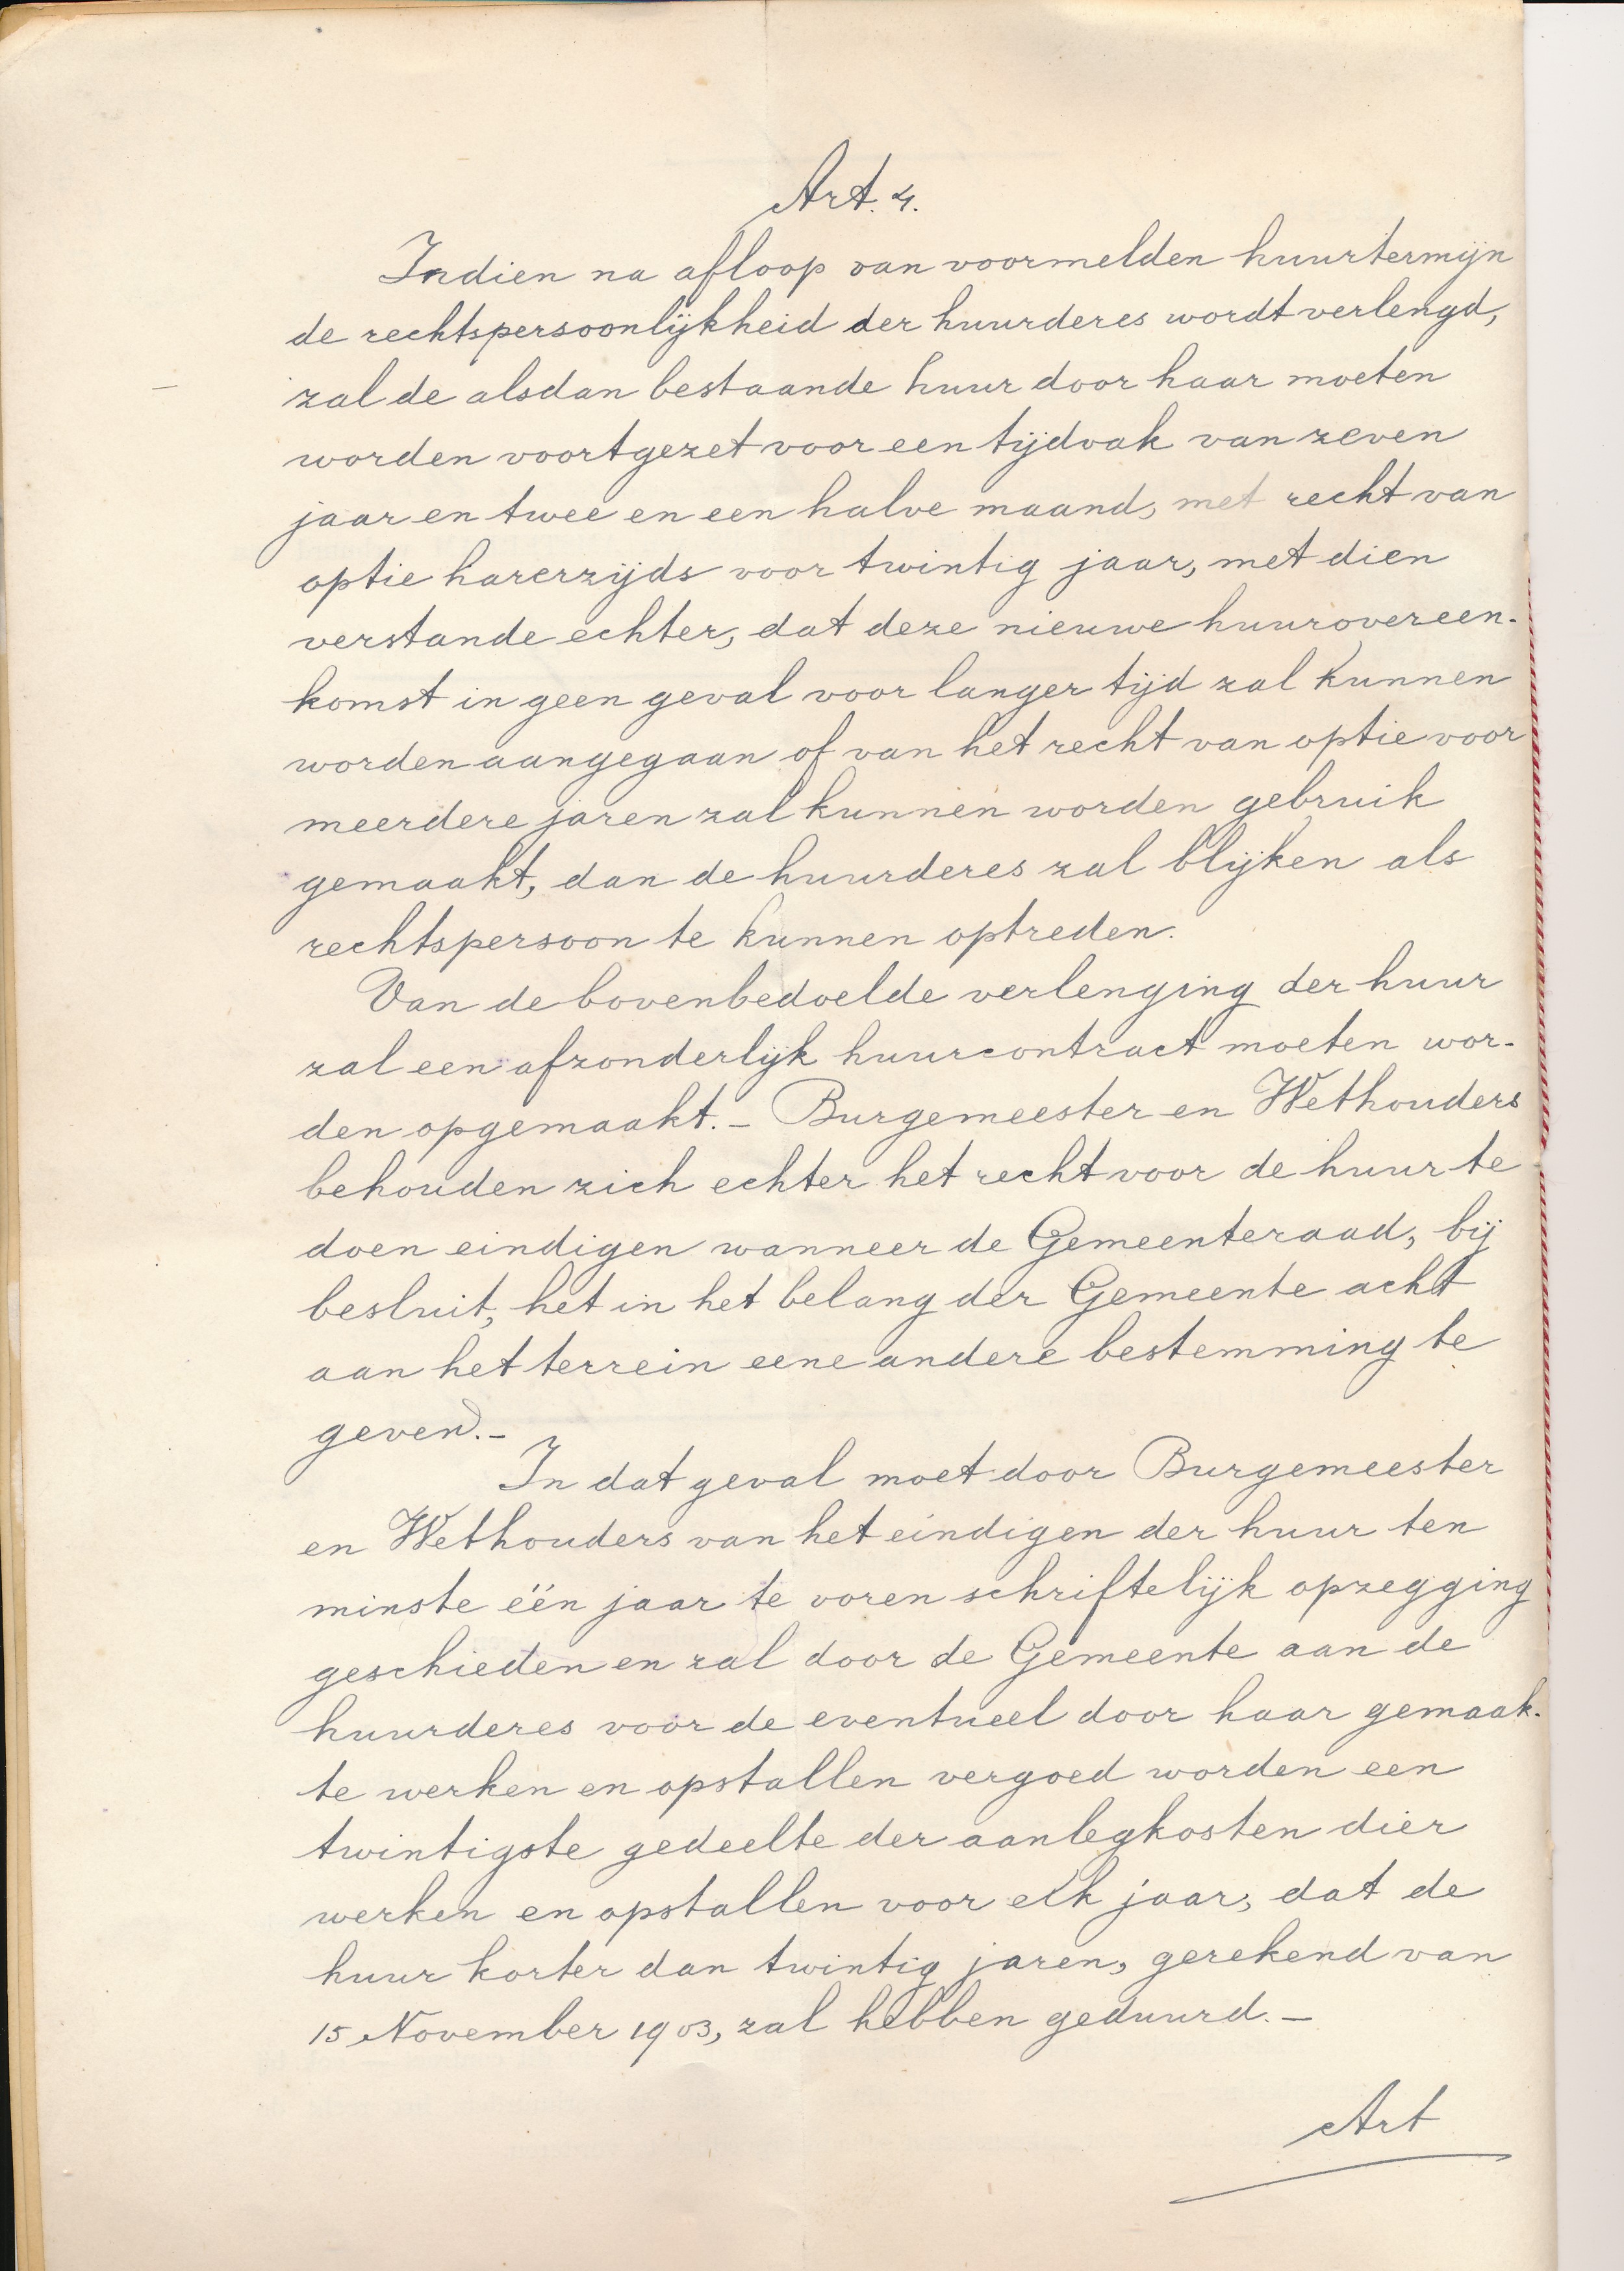 Art. 4.
Indien na afloop van voormelden huurtermijn
de rechtspersoonlijkheid der huurderes wordt verlengd,
zal de alsdan bestaande huur door haar moeten
worden voortgezet voor een tijdvak van zeven
jaar en twee en een halve maand, met recht van
optie harerzijds voor twintig jaar, met dien
verstande echter, dat deze nieuwe huurovereen-
komst in geen geval voor langer tijd zal kunnen
worden aangegaan of van het recht van optie voor
meerdere jaren zal kunnen worden gebruik
gemaakt, dan de huurderes zal blijken als
rechtspersoon te kunnen optreden.
Van de bovenbedoelde verlenging der huur
zal een afzonderlijk huurcontract moeten wor-
den opgemaakt. – Burgemeester en Wethouders
behouden zich echter het recht voor de huur te
doen eindigen wanneer de Gemeenteraad, bij
besluit, het in het belang der Gemeente acht
aan het terrein eene andere bestemming te
geven. –
In dat geval moet door Burgemeester
en Wethouders van het eindigen der huur ten
minste één jaar te voren schriftelijk opzegging
geschieden en zal door de Gemeente aan de
huurderes voor de eventueel door haar gemaak-
te werken en opstallen vergoed worden een
twintigste gedeelte der aanlegkosten dier
werken en opstallen voor elk jaar, dat de
huur korter dan twintig jaren, gerekend van
15 November 1903, zal hebben geduurd. –
Art